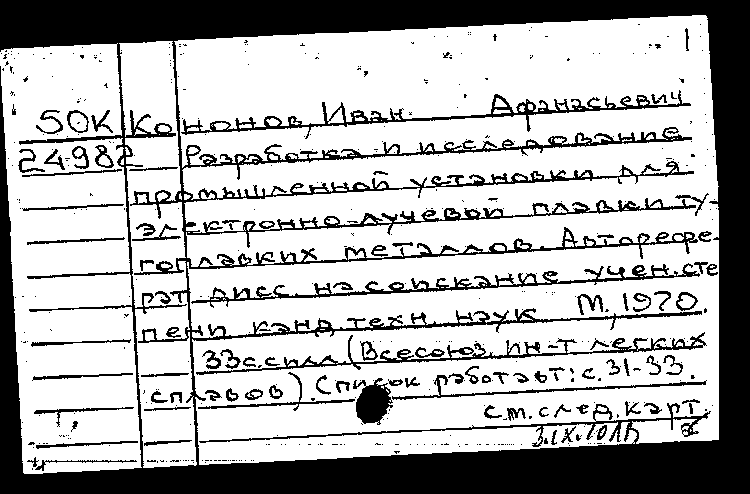 50К Кононов, Иван Афанасьевич
24982 Разработка и исследование
промышленной установки для
электронно-лучевой плавки ту-
гоплавких металлов. Авторефе-
рат дисс. на соискание учен. сте
пени канд. техн. наук М., 1970.
33с. с илл (Всесоюз. ин-т легких
сплавов). Список работ авт: с. 31-33.
см. след. карт.